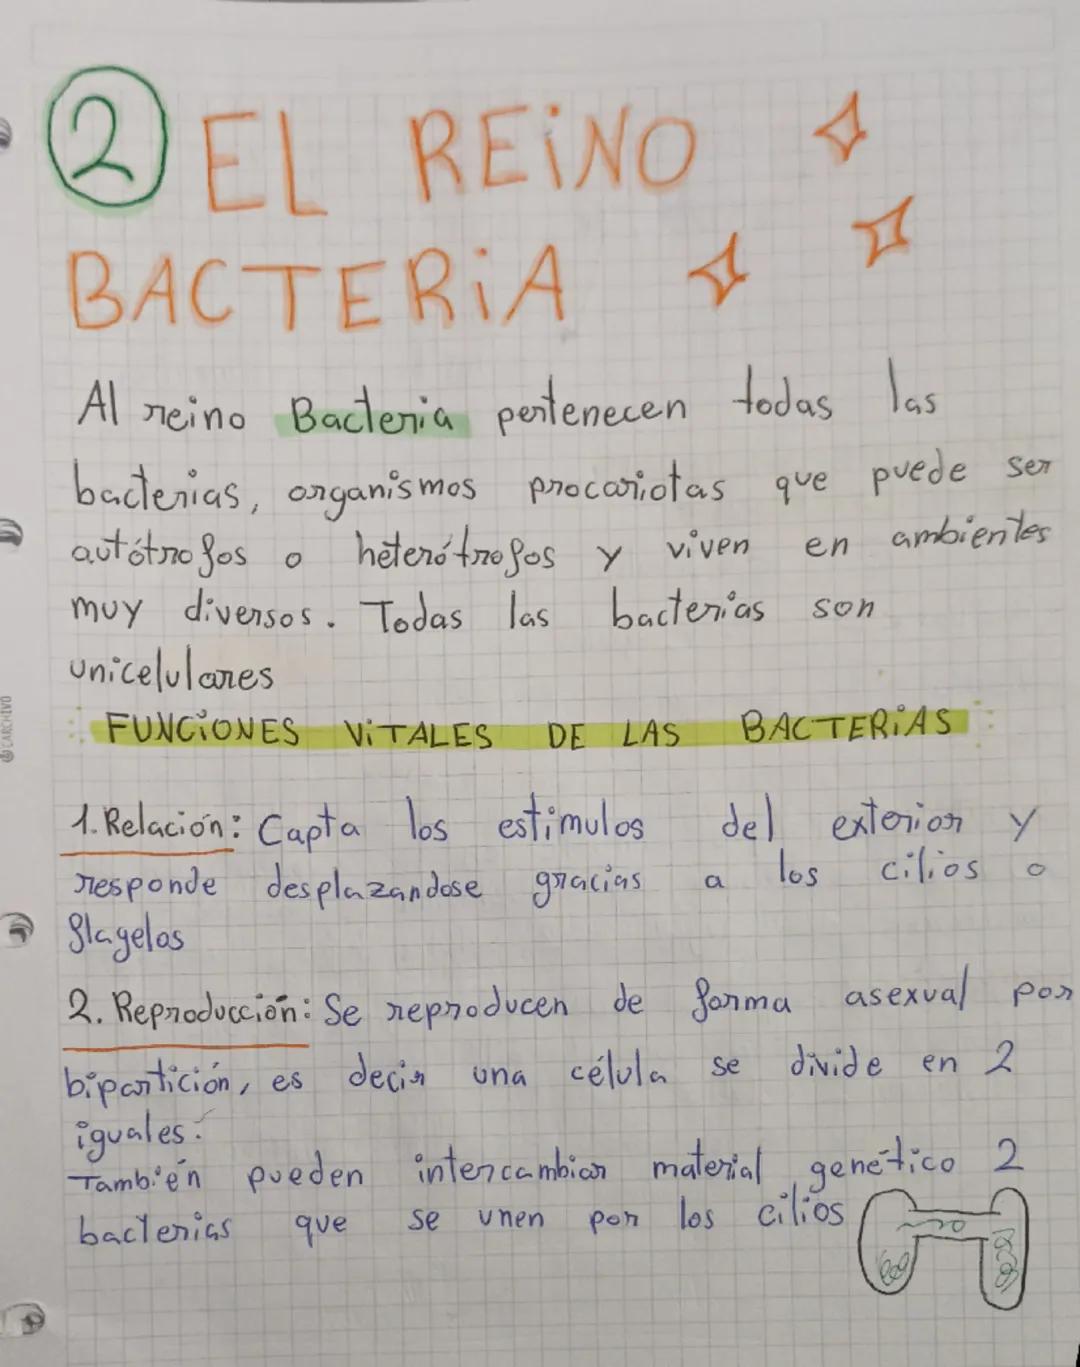 2 EL REINO
BACTERIA
Al reino Bacteria pertenecen todas las
bacterias, organismos procariotas que puede ser
autótrofos o heterótrofos y viven en ambientes
muy diversos. Todas las bacterias son
unicelulares
FUNCIONES VITALES DE LAS BACTERIAS
1. Relación: Capta los estimulos del exterior y
responde desplazandose gracias a los cilios o
flagelos
2. Reproducción: Se reproducen de forma asexual por
bipartición, es decir una célula se divide en 2
iguales.
También pueden intercambiar material genético 2
bacterias que se unen por los cilios
CARCHIVO